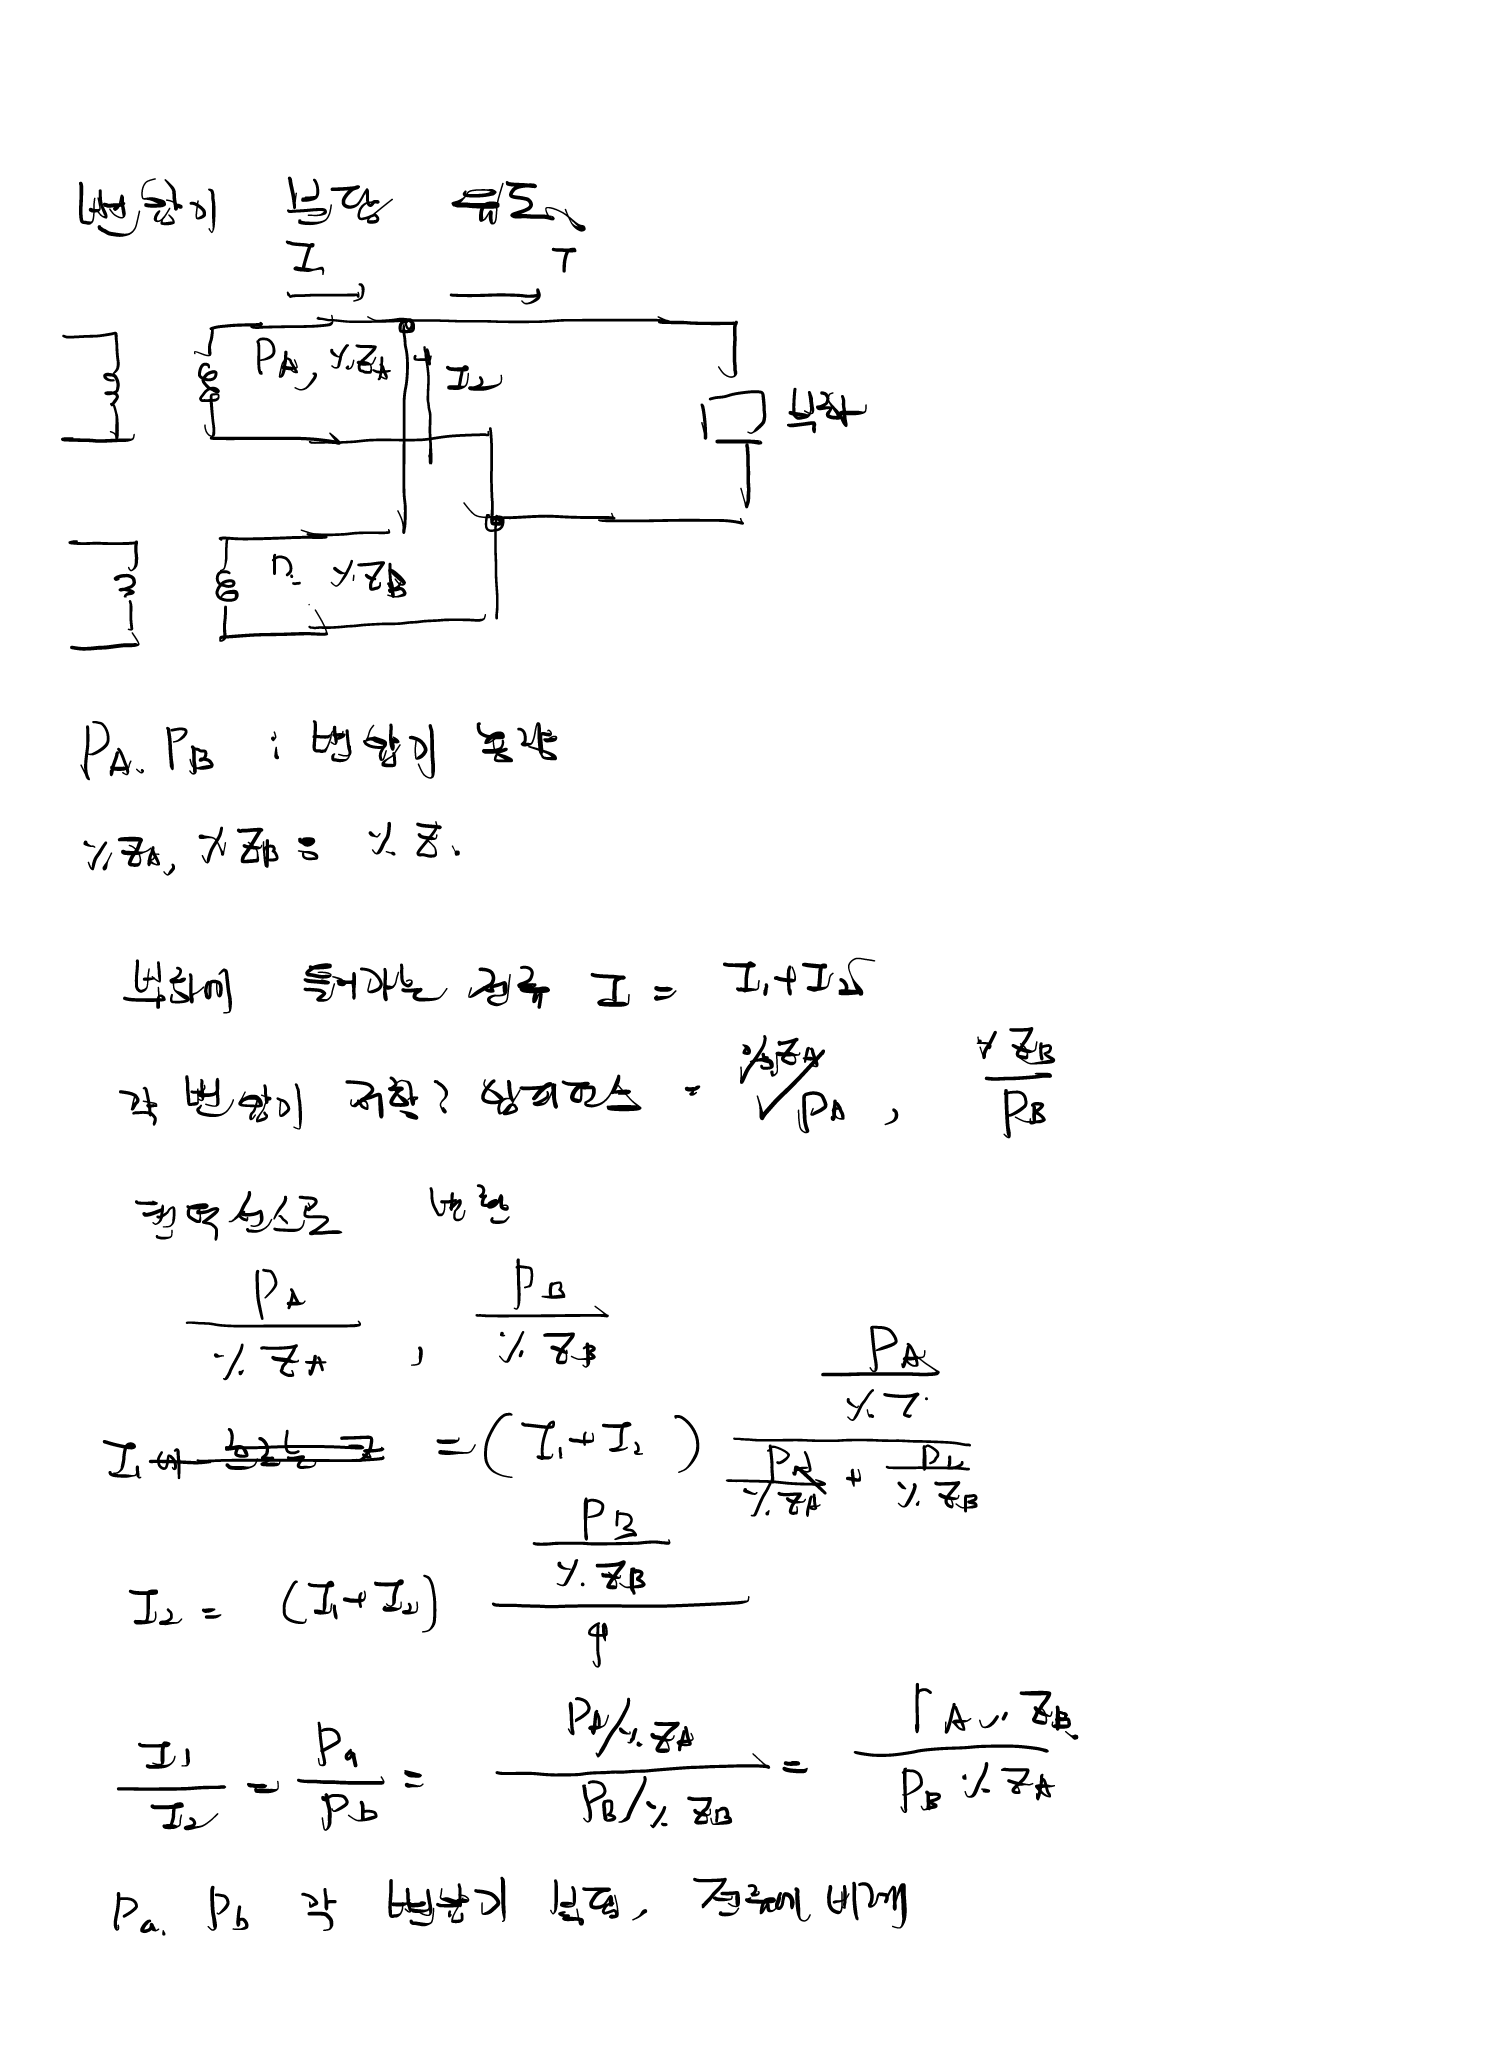 변압기 분담 유도
I₁ I
P_A, %Z_A I₂ 부하
%Z_B
P_A. P_B : 변압기 용량
%Z_A, %Z_B : %Z.
부하에 들어가는 전류 I = I₁+I₂
각 변압기 저항? 임피던스 = %Z_A/P_A, %Z_B/P_B
변환
P_A/%Z_A, P_B/%Z_B
I₁ = (I₁+I₂) (P_A/%Z)/(P_A/%Z_A + P_B/%Z_B)
I₂ = (I₁+I₂) (P_B/%Z_B)/〃
I₁/I₂ = P_a/P_b = (P_A/%Z_A)/(P_B/%Z_B) = (P_A %Z_B)/(P_B %Z_A)
P_a. P_b 각 변압기 분담, 전류에 비례